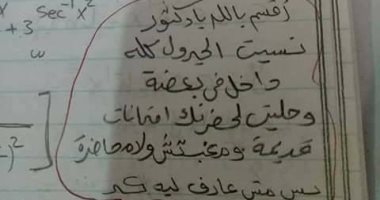 sec⁻¹ x²
+ 3
أقسم بالله يا دكتور
نسيت الجدول كله
داخل في بعضه
وحليت لحضرتك امتحانات
قديمة ومغبتش ولا محاضرة
بس مش عارف ليه كده